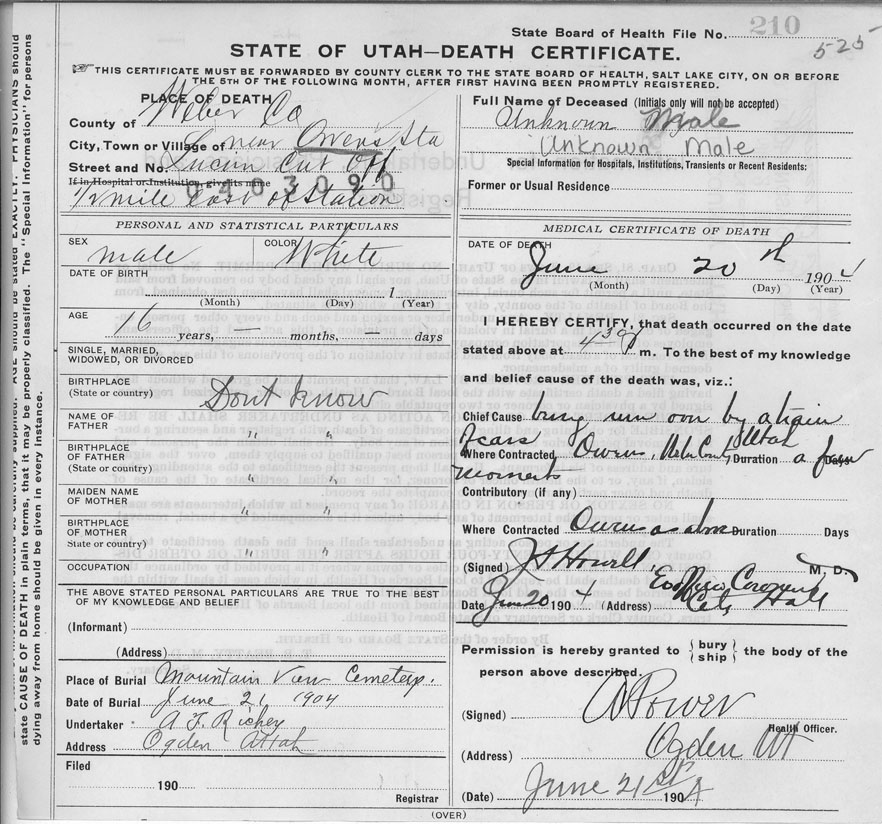 State Board of Health File No. 210
525
STATE OF UTAH—DEATH CERTIFICATE.
☞THIS CERTIFICATE MUST BE FORWARDED BY COUNTY CLERK TO THE STATE BOARD OF HEALTH, SALT LAKE CITY, ON OR BEFORE
THE 5TH OF THE FOLLOWING MONTH, AFTER FIRST HAVING BEEN PROMPTLY REGISTERED.
PLACE OF DEATH
County of Weber Co
City, Town or Village of near Owens Sta
Street and No. Lucin Cut Off
If in Hospital or Institution, give its name
0403090
1/2 mile East of Station
Full Name of Deceased (Initials only will not be accepted)
Unknown Male
Unknown Male
Special Information for Hospitals, Institutions, Transients or Recent Residents:
Former or Usual Residence
PERSONAL AND STATISTICAL PARTICULARS
SEX male
COLOR White
DATE OF BIRTH
1
(Month) (Day) (Year)
AGE
16 years, — months, — days
SINGLE, MARRIED,
WIDOWED, OR DIVORCED
BIRTHPLACE
(State or country) Dont know
NAME OF
FATHER " "
BIRTHPLACE
OF FATHER " "
(State or country)
MAIDEN NAME
OF MOTHER " "
BIRTHPLACE
OF MOTHER " "
(State or country)
OCCUPATION
THE ABOVE STATED PERSONAL PARTICULARS ARE TRUE TO THE BEST
OF MY KNOWLEDGE AND BELIEF
(Informant)
(Address)
Place of Burial Mountain View Cemetery.
Date of Burial June 21 1904
Undertaker A F. Richey
Address Ogden Uttah
Filed
190
Registrar
MEDICAL CERTIFICATE OF DEATH
DATE OF DEATH
June 20th 1904
(Month) (Day) (Year)
I HEREBY CERTIFY, that death occurred on the date
stated above at 4 30 m. To the best of my knowledge
and belief cause of the death was, viz.:
Chief Cause being run over by a train
of cars
Where Contracted Owens, Utah Duration a few Days
moments
Contributory (if any)
Where Contracted Owens Duration Days
(Signed) J H Howell M. D.
Date June 20 1904 (Address) City Hall
Permission is hereby granted to {bury
ship} the body of the
person above described.
(Signed) A Power
Health Officer.
(Address) Ogden Ut
(Date) June 21st 1904
(OVER)
state CAUSE OF DEATH in plain terms, that it may be properly classified. The "Special Information" for persons
dying away from home should be given in every instance.